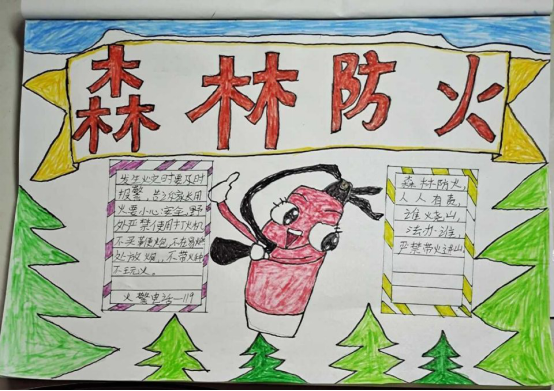 森林防火
发生火灾时要及时
报警,
火要小心安全,野
外严禁使用打火机
不买
处放烟,不带火种
不玩火。
火警电话—119
森林防火,
人人有责,
谁火烧山,
法办谁,
严禁带火进山